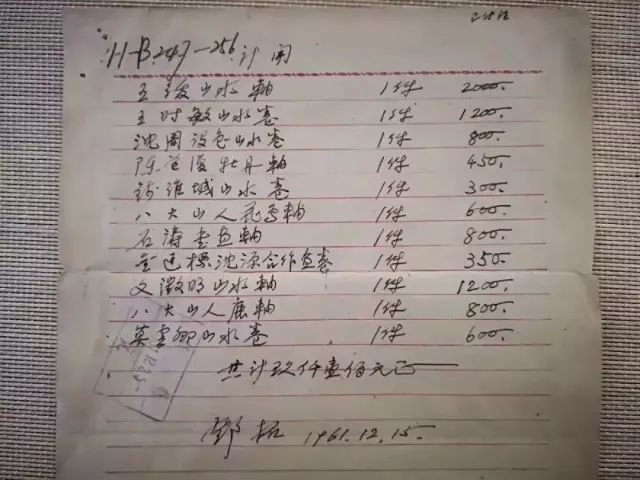 已结账
H-B247-256 计开
王绂山水軸 1件 2000.
王时敏山水卷 1件 1200.
沈周设色山水卷 1件 800.
陈道復牡丹軸 1件 450.
钱维城山水卷 1件 300.
八大山人花鸟軸 1件 600.
石涛画軸 1件 800.
金廷标沈源合作画卷 1件 350.
文徵明山水軸 1件 1200.
八大山人鹿軸 1件 800.
莫雲卿山水卷 1件 600.
共计玖仟壹佰元正
鄧拓 1961.12.15.